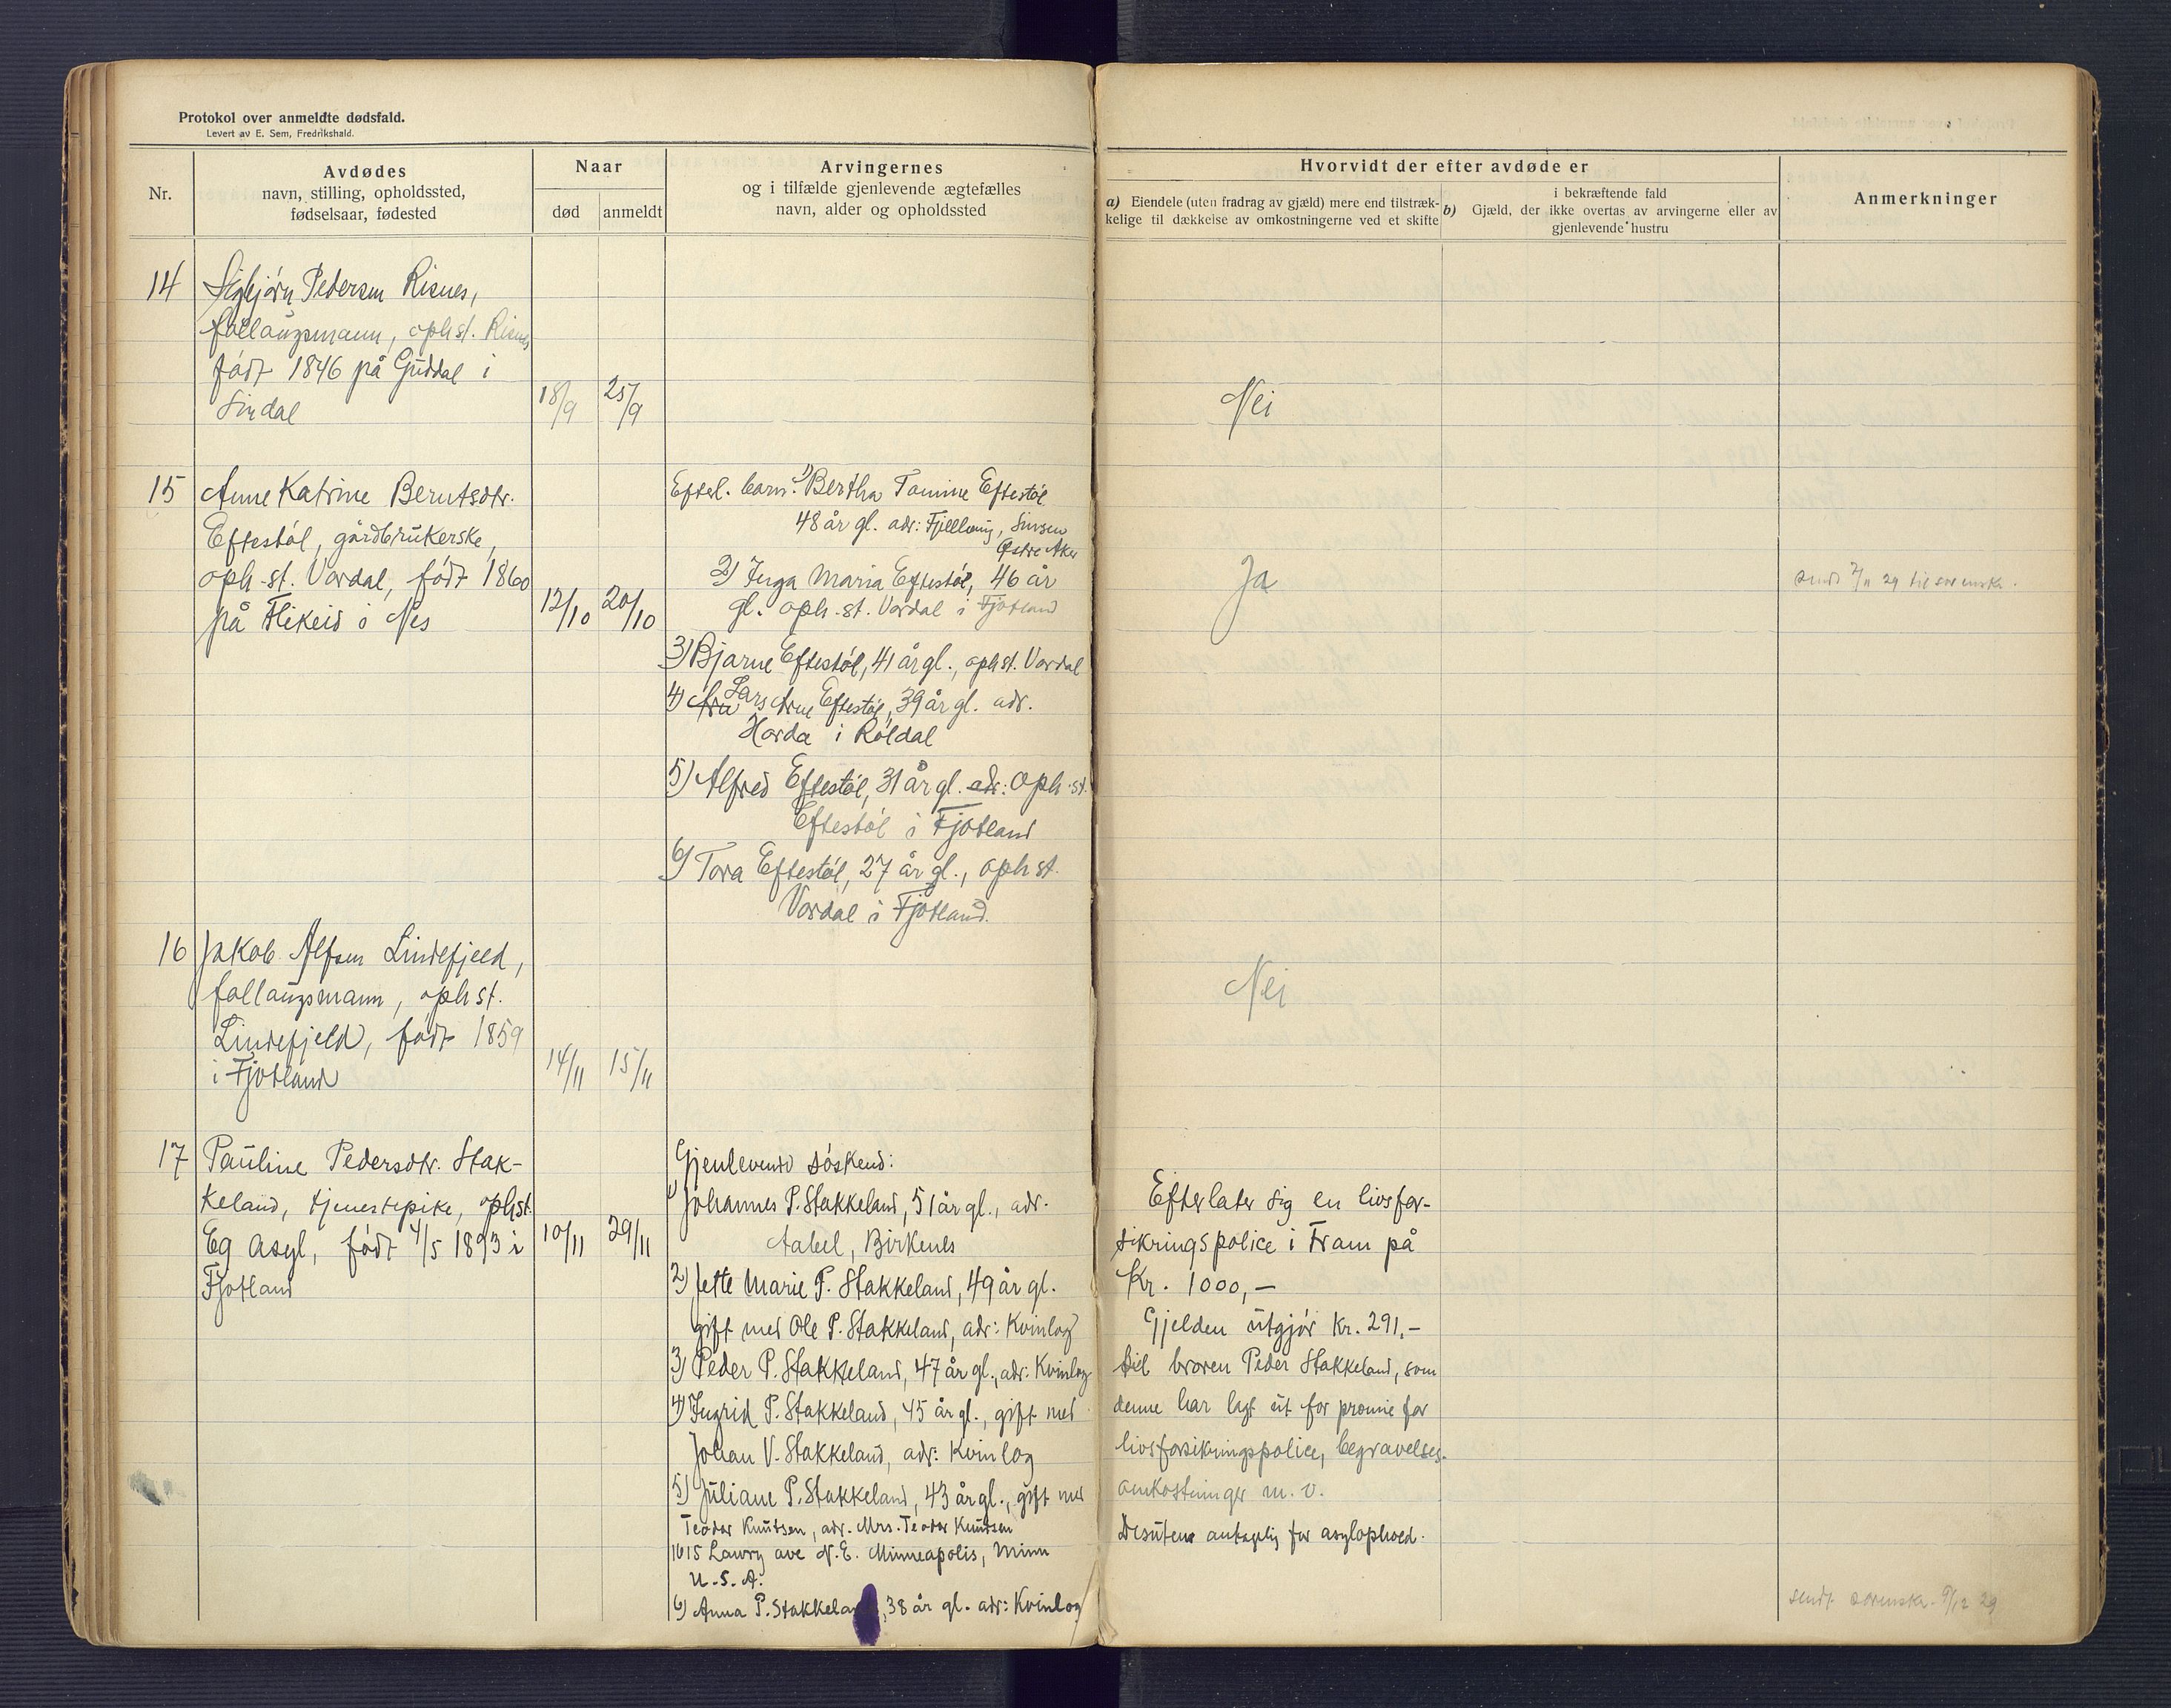 Protokol over anmeldte dødsfald.
Levert av E. Sem, Fredrikshald.
Nr.
Avdødes
navn, stilling, opholdssted,
fødselsaar, fødested
Naar
død
anmeldt
Arvingernes
og i tilfælde gjenlevende ægtefælles
navn, alder og opholdssted
Hvorvidt der efter avdøde er
a) Eiendele (uten fradrag av gjæld) mere end tilstræk-
kelige til dækkelse av omkostningerne ved et skifte
i bekræftende fald
b) Gjæld, der ikke overtas av arvingerne eller av
gjenlevende hustru
Anmerkninger
14
Sigbjørn Pedersen Risnes,
follaugsmann, ophst. Risnes
født 1846 på Guddal i
Sirdal
18/9
25/9
Nei
15
Anne Katrine Berntsdtr.
Eftestøl, gårdbrukerske,
oph.st. Vordal, født 1860
på Flikeid i Nes
12/10
20/10
Eftel. barn: 1) Bertha Tomine Eftestøl
48 år gl. adr: Fjellhaug, Sinsen
Østre Aker
2) Inga Maria Eftestøl, 46 år
gl. oph.st. Vordal i Fjotland
3) Bjarne Eftestøl, 41 år gl., ophst. Vordal
4) Lars Arne Eftestøl, 39 år gl. adr.
Horda i Røldal
5) Alfred Eftestøl, 31 år gl. adr: oph.st.
Eftestøl i Fjotland
6) Tora Eftestøl, 27 år gl., ophst.
Vordal i Fjotland.
Ja
sendt 2/11 29 til sorenskr.
16
Jakob Alfsen Lindefjeld,
follaugsmann, ophst.
Lindefjeld, født 1859
i Fjotland
14/11
15/11
Nei
17
Pauline Pedersdtr. Stak-
keland, tjenestepike, ophst.
Eg Asyl, født 4/5 1893 i
Fjotland
10/11
29/11
Gjenlevende søskend:
1) Johannes P. Stakkeland, 51 år gl., adr.
Aabel, Birkenes
2) Jette Marie P. Stakkeland, 49 år gl.
gift med Ole P. Stakkeland, adr: Kvinlog
3) Peder P. Stakkeland, 47 år gl., adr: Kvinlog
4) Ingrid P. Stakkeland, 45 år gl., gift med
Johan V. Stakkeland, adr: Kvinlog
5) Juliane P. Stakkeland, 43 år gl., gift med
Teodor Knutsen, adr. Mrs. Teodor Knutsen
1615 Lawry ave N.E. Minneapolis, Minn
U.S.A.
6) Anna P. Stakkeland, 38 år gl. adr: Kvinlog
Efterlater sig en livsfor-
sikringspolice i Fram på
Kr. 1000,-
Gjelden utgjør kr. 291,-
til broren Peder Stakkeland, som
denne har lagt ut for premie for
livsforsikringspolice, begravelses-
omkostninger m.v.
Desuten antagelig for asylophold.
sendt sorenskr. 9/12 29